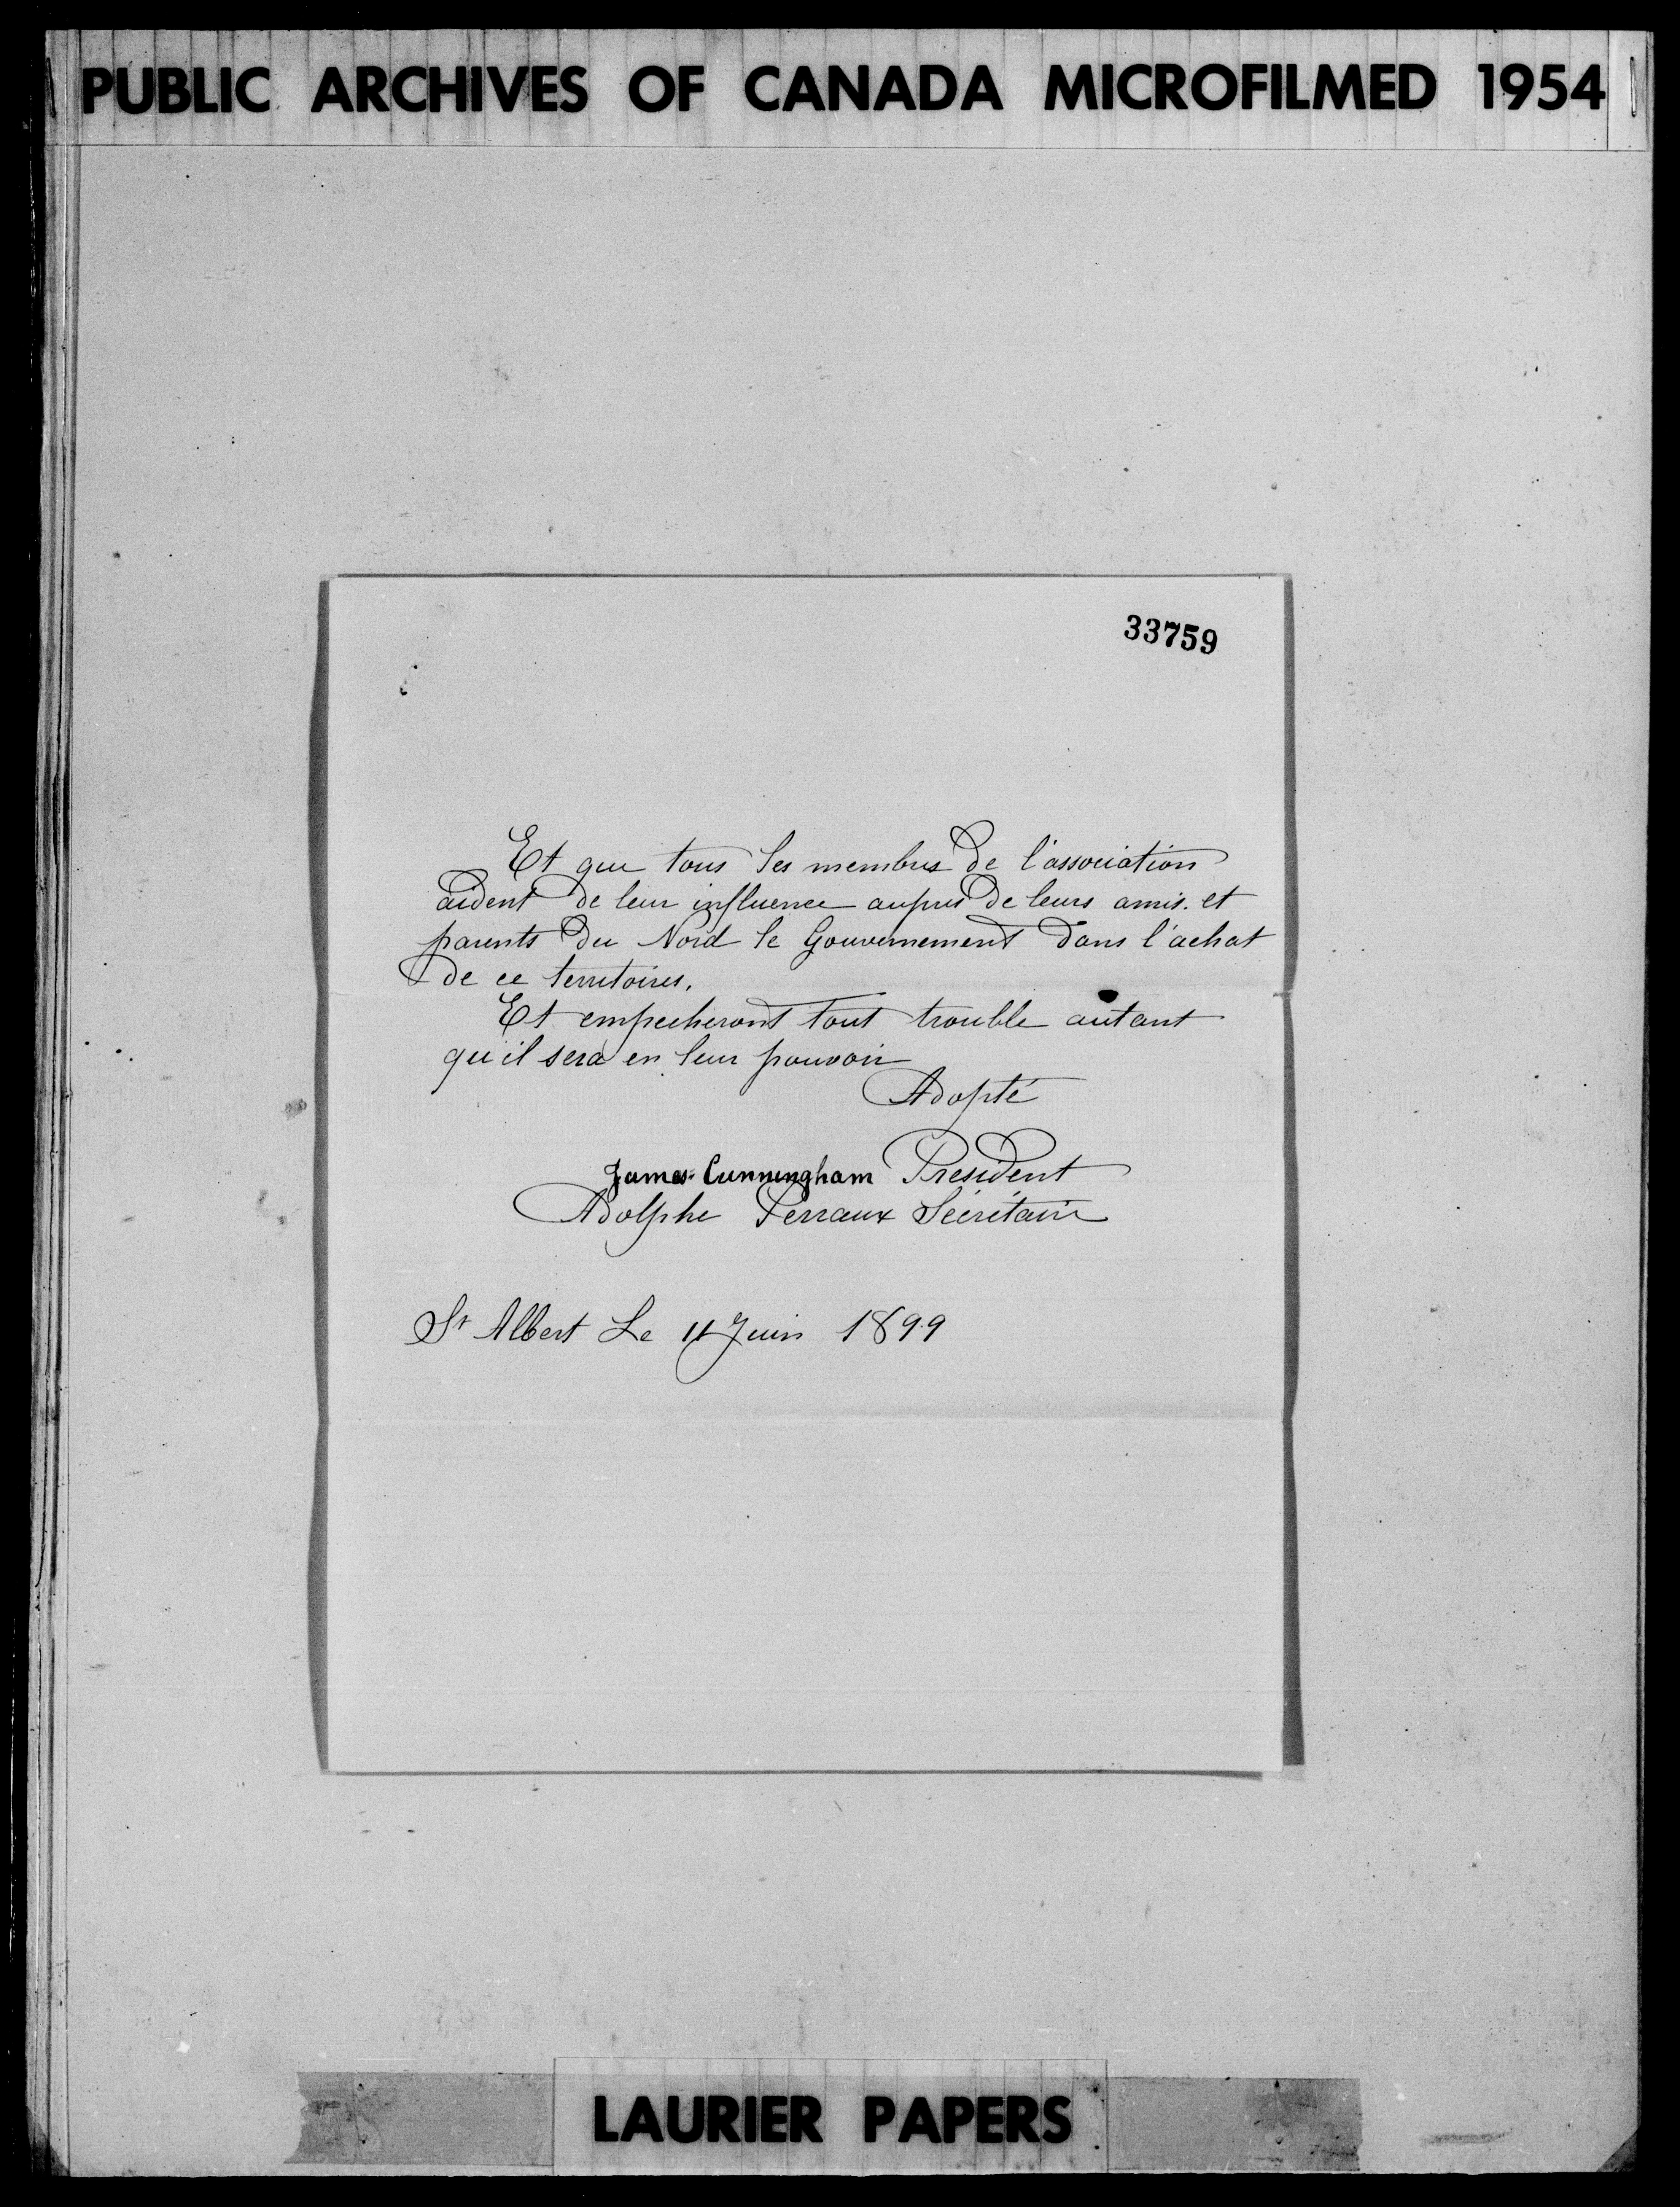 PUBLIC ARCHIVES OF CANADA MICROFILMED 1954
33759
Et que tous les membres de l'association
aident de leur influence aupres de leurs amis. et
parents du Nord le Gouvernement dans l'achat
de ce territoires.
Et empecheront tout trouble autant
qu'il sera en leur pouvoir
Adopté
James Cunningham President
Adolphe Perraux Sécrétaire
St Albert Le 11 Juin 1899
LAURIER PAPERS